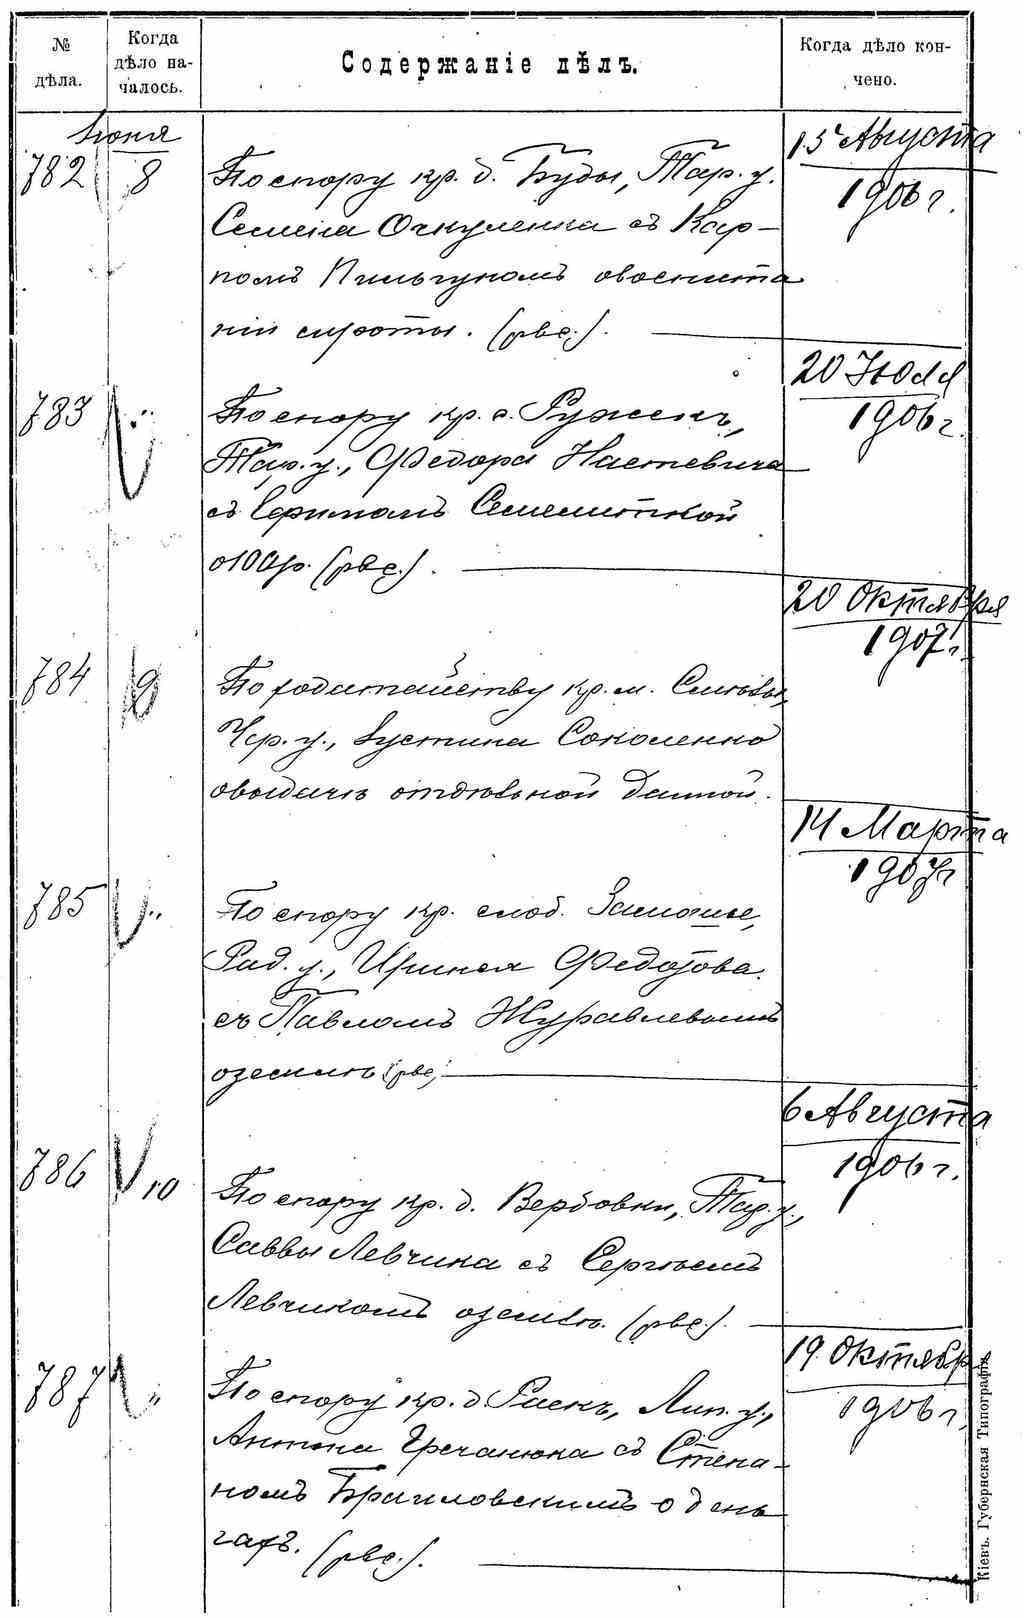 № дѣла.
Когда дѣло на-
чалось.
Содержаніе дѣлъ.
Когда дѣло кон-
чено.
Іюня
782 8
По спору кр. д. Буды, Тар. у.
Семена Очкуленка съ Кар-
помъ Пильгуномъ о воспита
ніи сироты. (рвс.).
15 Августа
1906 г.
783 "
По спору кр. с. Ружекъ,
Тар. у., Федора Настевича
съ Ефимомъ Семениткой
о 100 р. (рвс.).
20 Іюля
1906 г.
784 9
По ходатайству кр. м. Смѣлы,
Чер. у., Іустина Соколенко
о выдачѣ отдѣльной данной.
20 Октября
1907 г.
785 "
По спору кр. слоб. Замошье,
Рад. у., Ириней Федотова
съ Павломъ Журавлевымъ
о землѣ (рвс)
14 Марта
1907 г.
786 10
По спору кр. д. Вербовки, Тар. у.,
Саввы Левчика съ Сергѣемъ
Левчикомъ о землѣ. (рвс.).
6 Августа
1906 г.
787 "
По спору кр. д. Раекъ, Лип. у.,
Антона Гречанюка съ Степа-
номъ Браиловскимъ о день
гахъ. (рвс.).
19 Октября
1906 г.
Кіевъ. Губернская Типографія.